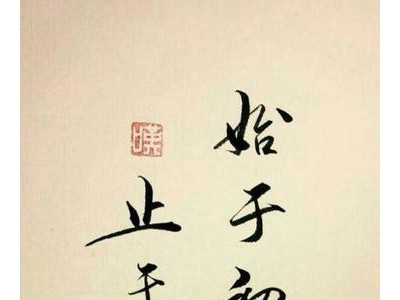 始于初
止于